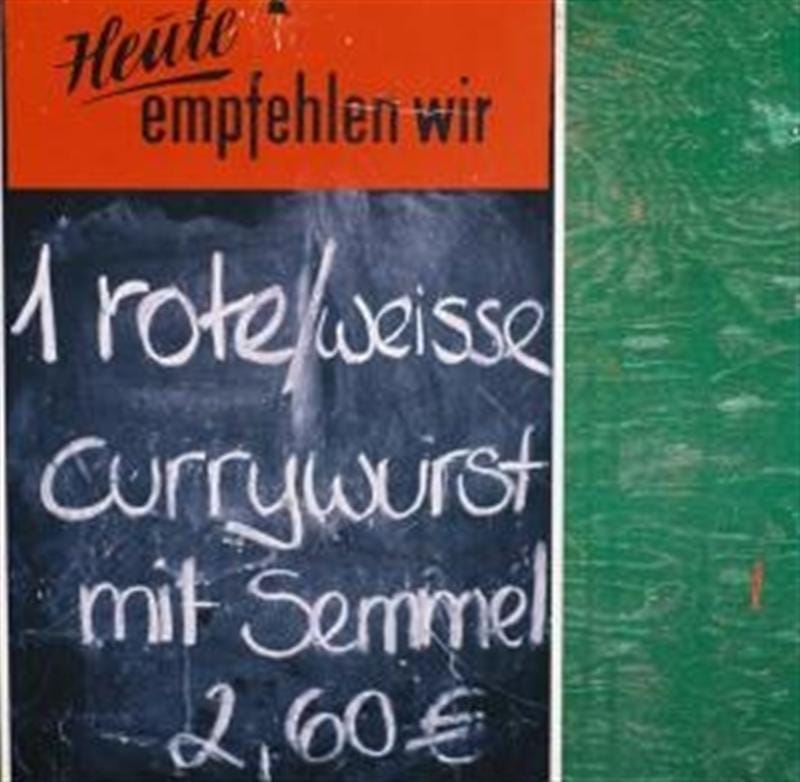 Heute
empfehlen wir
1 rote/weisse
Currywurst
mit Semmel
2,60 €